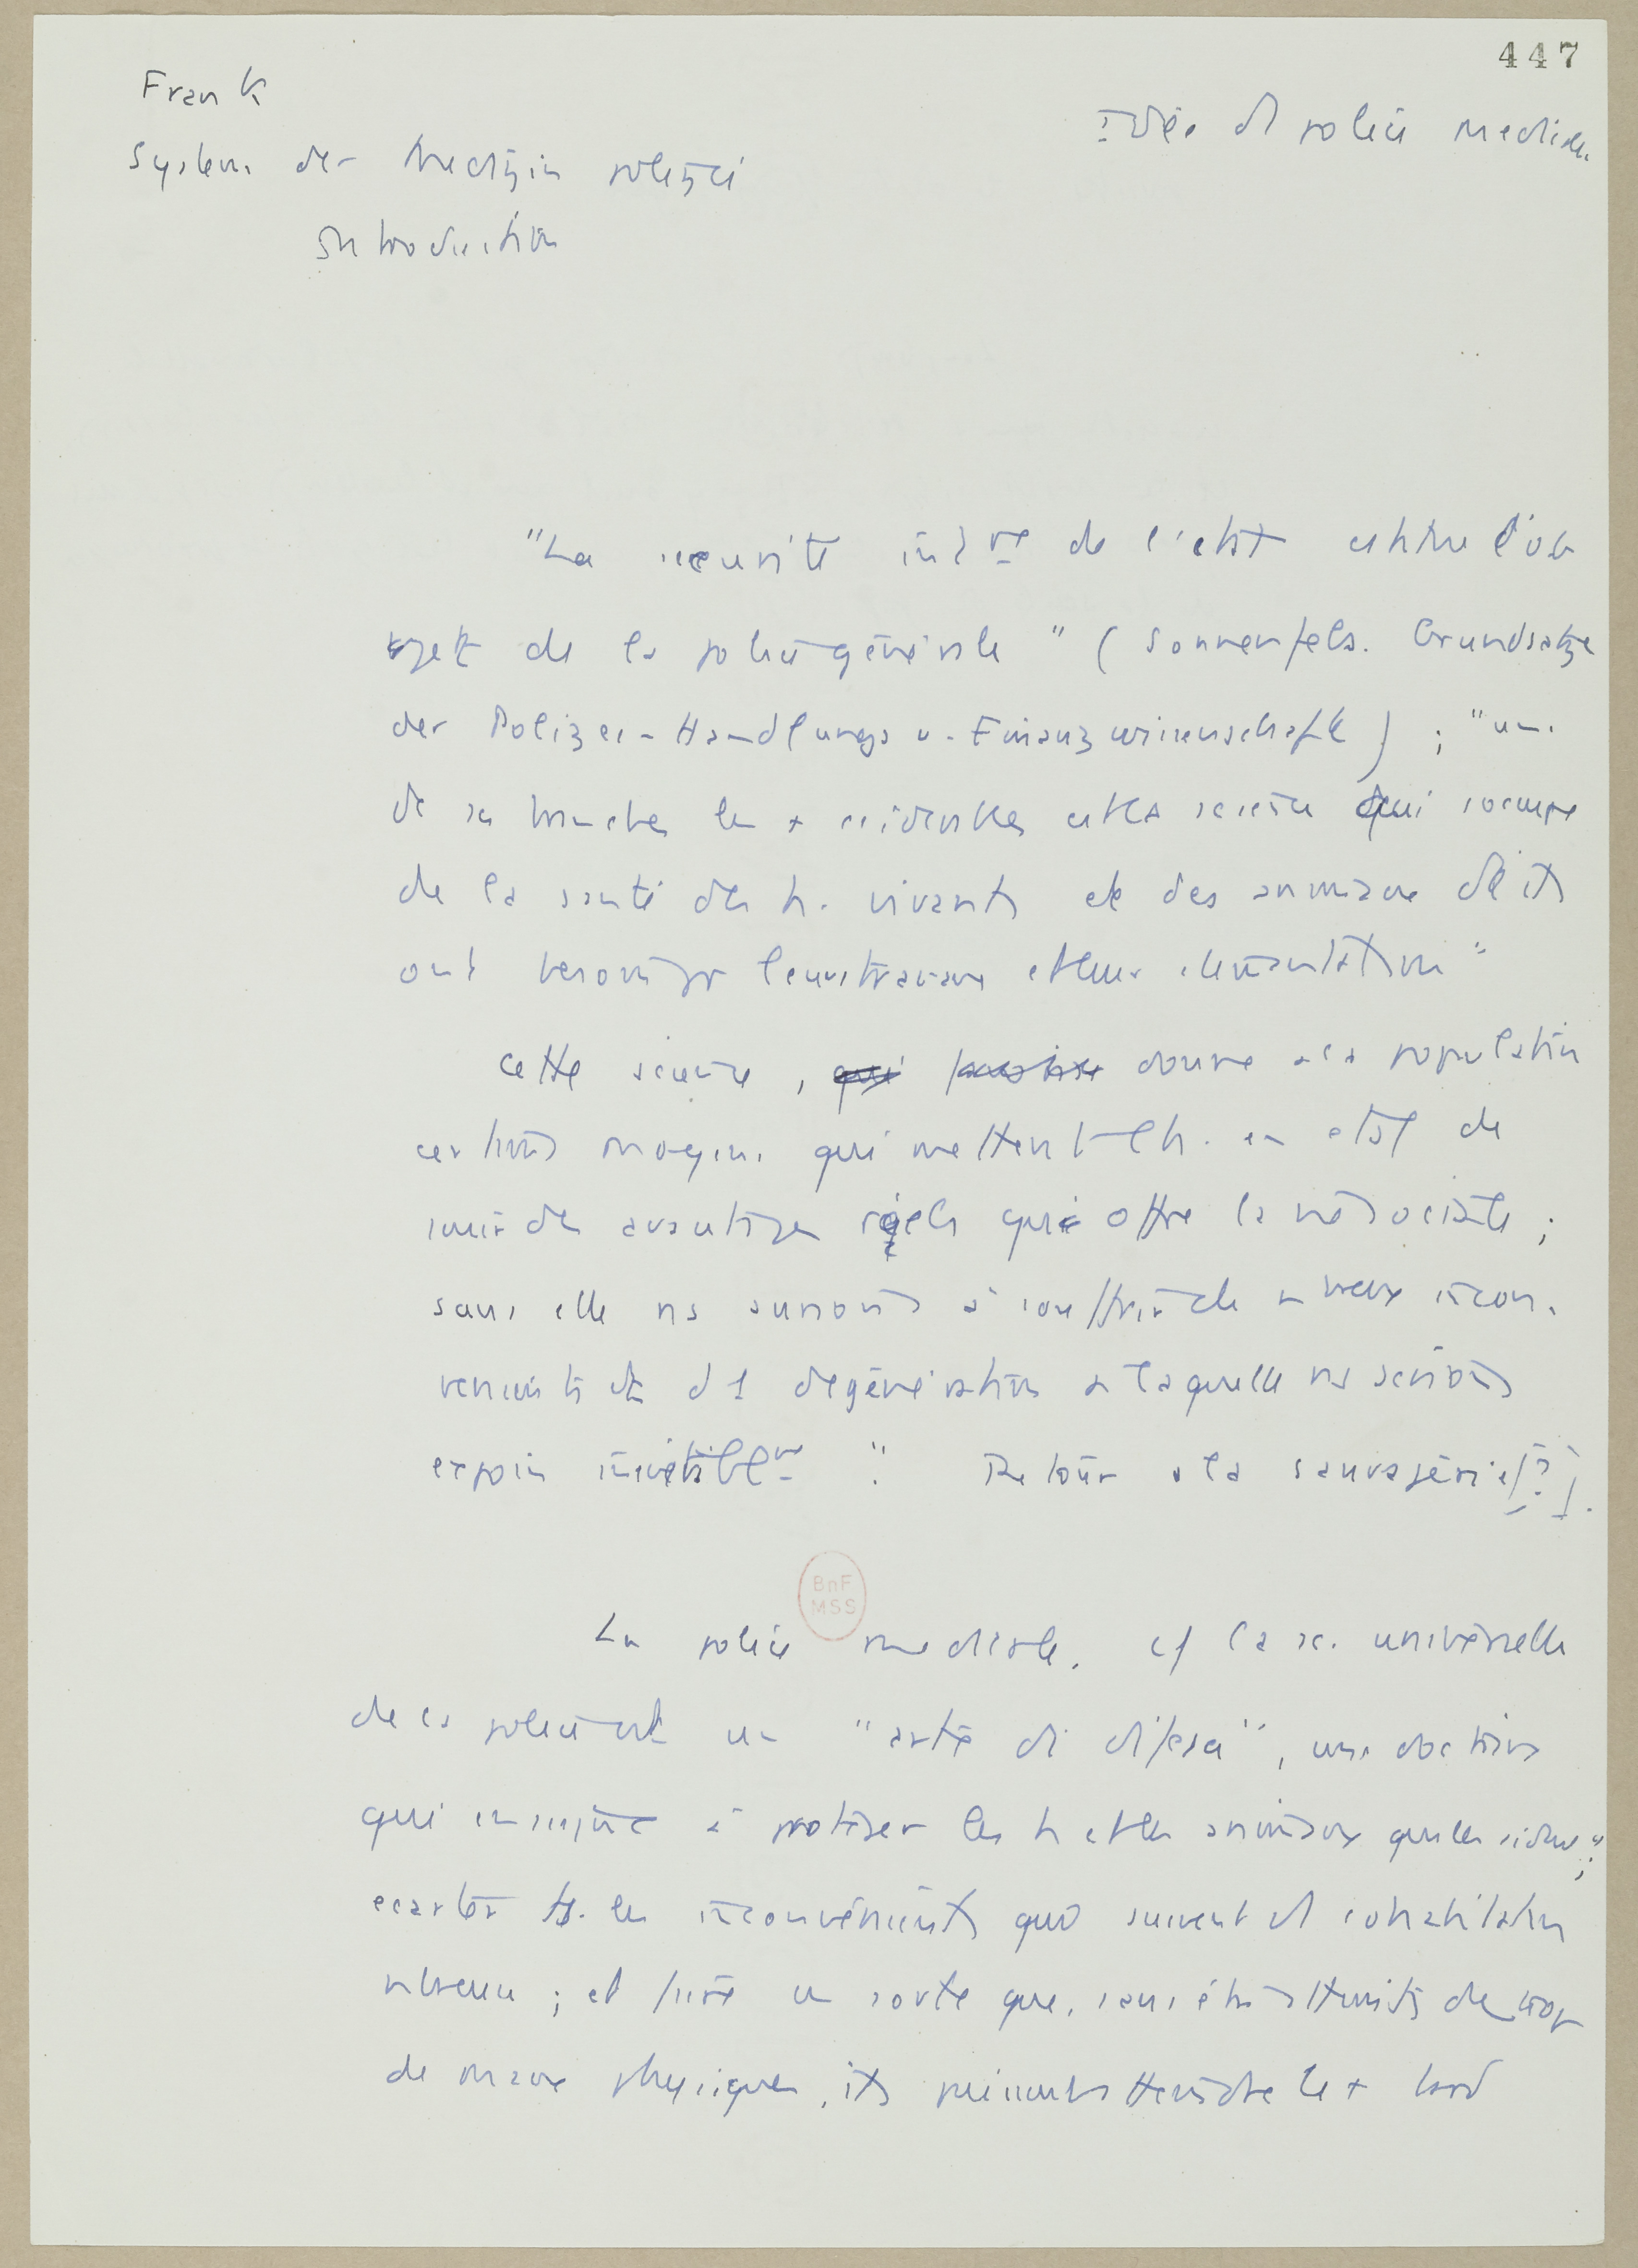 447
Frank
Idée d police medicale
System der Medizin polizei
Introduction
"La securité intre de l'etat est ttre l'ob
jet de la police générale " ( Sonnenfels. Grundsatze
der Polizei-Handlungs u. Finanzwissenschaft ) ; "une
de ses branches les + essentielles est la science qui s'occupe
de la santé des h. vivants et des animaux dt ils
ont besoin pr leurs travaux et leur alimentation"
Cette science , qui donne a la population
certains moyens qui mettent l h. en etat de
jouir des avantages réels que offre la vie sociale ;
sans elle ns aurions à souffrir de nbreux incon-
venients et d l dégénération a laquelle ns serions
exposés inévitablemt ". Retour a la sauvagerie [?].
BnF
MSS
La police medicale. cf la sc. universelle
de la police est un "arte di difesa", une doctrine
qui enseigne à protéger les h et les animaux qui les aident ;"
ecarter ts. les inconvénients qui suivent d cohabitation
nbreuse ; et faire en sorte que, sans être atteints de trop
de maux physiques, ils puissent atteindre le + tard